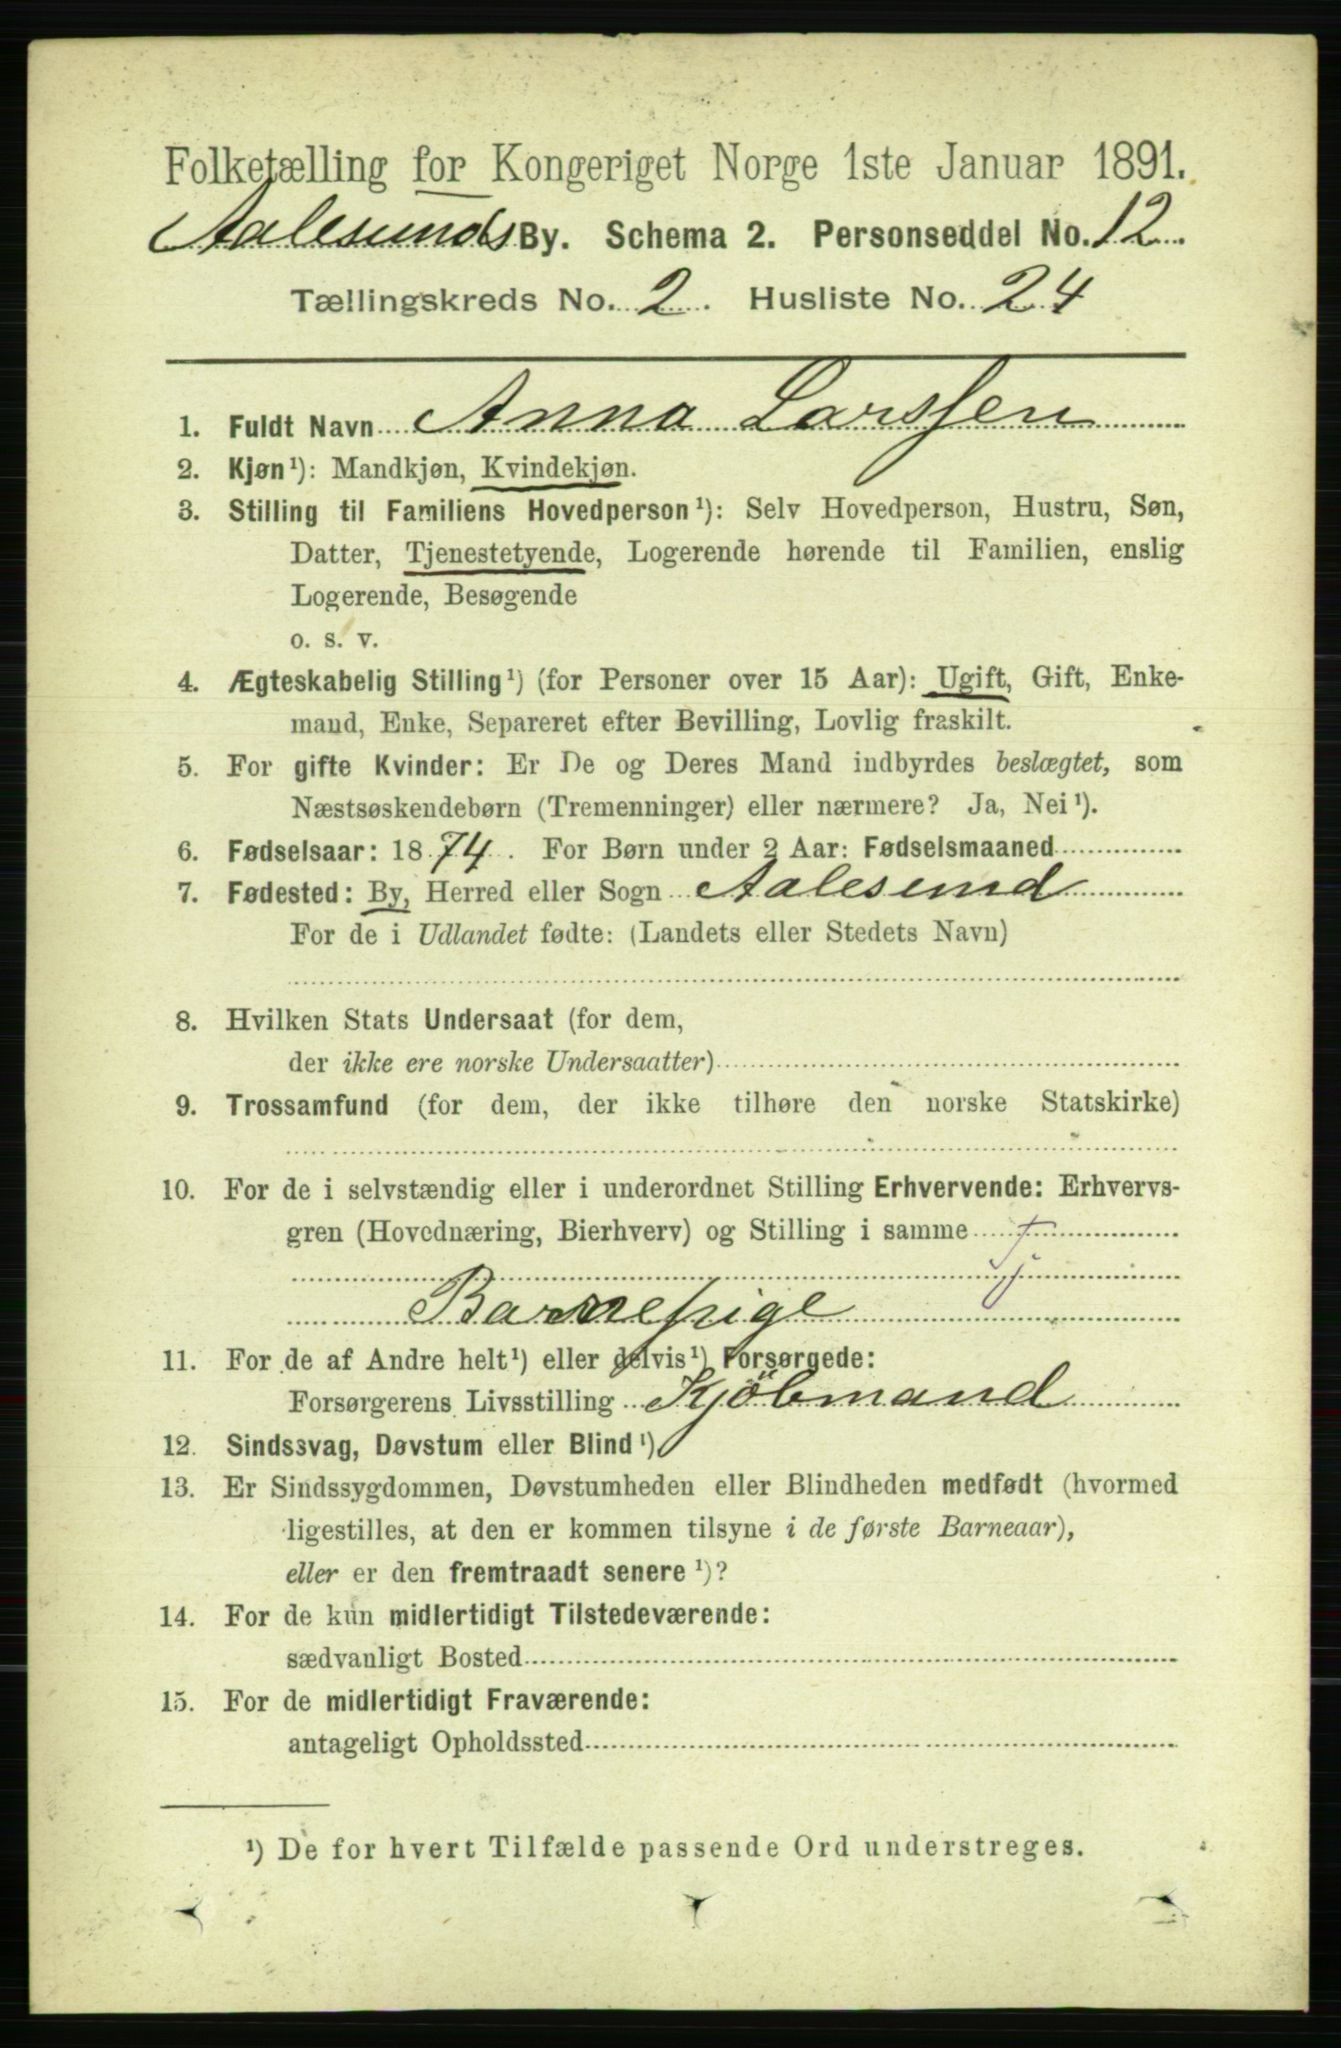 Folketælling for Kongeriget Norge 1ste Januar 1891.
Aalesunds By. Schema 2. Personseddel No. 12
Tællingskreds No. 2. Husliste No. 24
1. Fuldt Navn Anna Larssen
2. Kjøn¹): Mandkjøn, Kvindekjøn.
3. Stilling til Familiens Hovedperson¹): Selv Hovedperson, Hustru, Søn,
Datter, Tjenestetyende, Logerende hørende til Familien, enslig
Logerende, Besøgende
o. s. v.
4. Ægteskabelig Stilling¹) (for Personer over 15 Aar): Ugift, Gift, Enke-
mand, Enke, Separeret efter Bevilling, Lovlig fraskilt.
5. For gifte Kvinder: Er De og Deres Mand indbyrdes beslægtet, som
Næstsøskendebørn (Tremenninger) eller nærmere? Ja, Nei¹).
6. Fødselsaar: 1874. For Børn under 2 Aar: Fødselsmaaned
7. Fødested: By, Herred eller Sogn Aalesund
For de i Udlandet fødte: (Landets eller Stedets Navn)
8. Hvilken Stats Undersaat (for dem,
der ikke ere norske Undersaatter)
9. Trossamfund (for dem, der ikke tilhøre den norske Statskirke)
10. For de i selvstændig eller i underordnet Stilling Erhvervende: Erhvervs-
gren (Hovednæring, Bierhverv) og Stilling i samme
Barnepige
11. For de af Andre helt¹) eller delvis¹) Forsørgede:
Forsørgerens Livsstilling Kjöbmand
12. Sindssvag, Døvstum eller Blind¹)
13. Er Sindssygdommen, Døvstumheden eller Blindheden medfødt (hvormed
ligestilles, at den er kommen tilsyne i de første Barneaar),
eller er den fremtraadt senere¹)?
14. For de kun midlertidigt Tilstedeværende:
sædvanligt Bosted
15. For de midlertidigt Fraværende:
antageligt Opholdssted
¹) De for hvert Tilfælde passende Ord understreges.